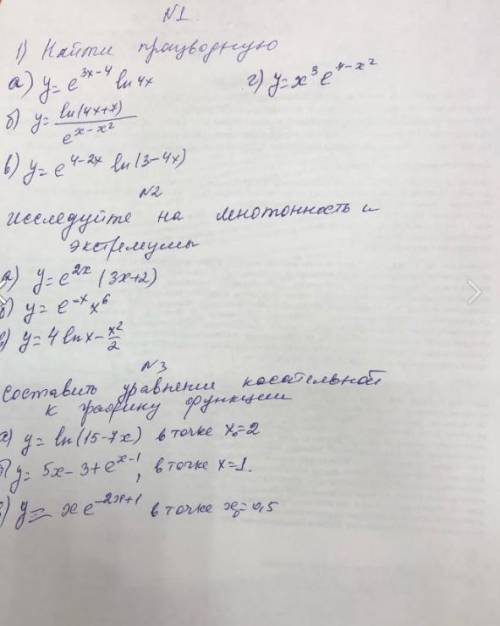 N1
1) Найти працводную
а) y = e^{3x-4} ln 4x   г) y = x^3 e^{4-x^2}
б) y = ln(4x+x) / e^{x-x^2}
в) y = e^{4-2x} ln(3-4x)
N2
Исследуйте на мнотонность и
экстремумы
а) y = e^{2x} (3x+2)
б) y = e^{-x} x^6
в) y = 4 ln x - x^2/2
N3
Составить уравнение касательной
к графику функции
а) y = ln(15-7x) в точке x_0=2
б) y = 5x-3+e^{x-1}, в точке x=1.
в) y = xe^{-2x+1} в точке x_0=0,5